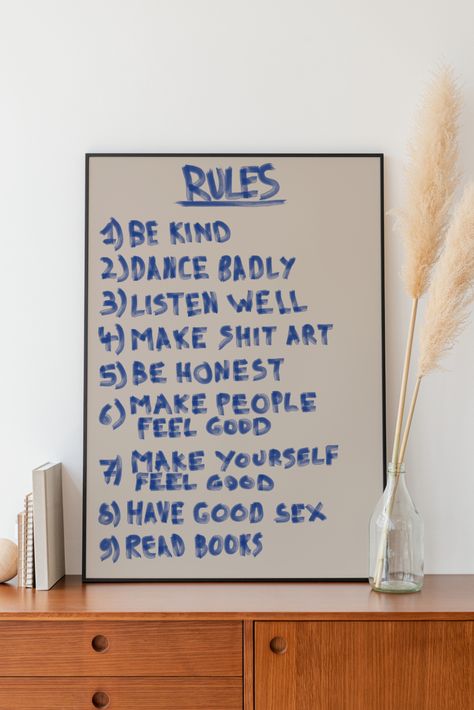 RULES
1) BE KIND
2) DANCE BADLY
3) LISTEN WELL
4) MAKE SHIT ART
5) BE HONEST
6) MAKE PEOPLE
FEEL GOOD
7) MAKE YOURSELF
FEEL GOOD
8) HAVE GOOD SEX
9) READ BOOKS